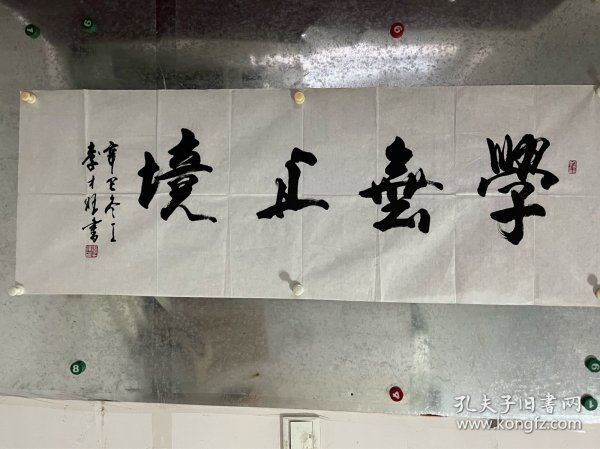 學無止境
辛巳冬立
李才旺書
孔夫子旧书网
www.kongfz.com
8